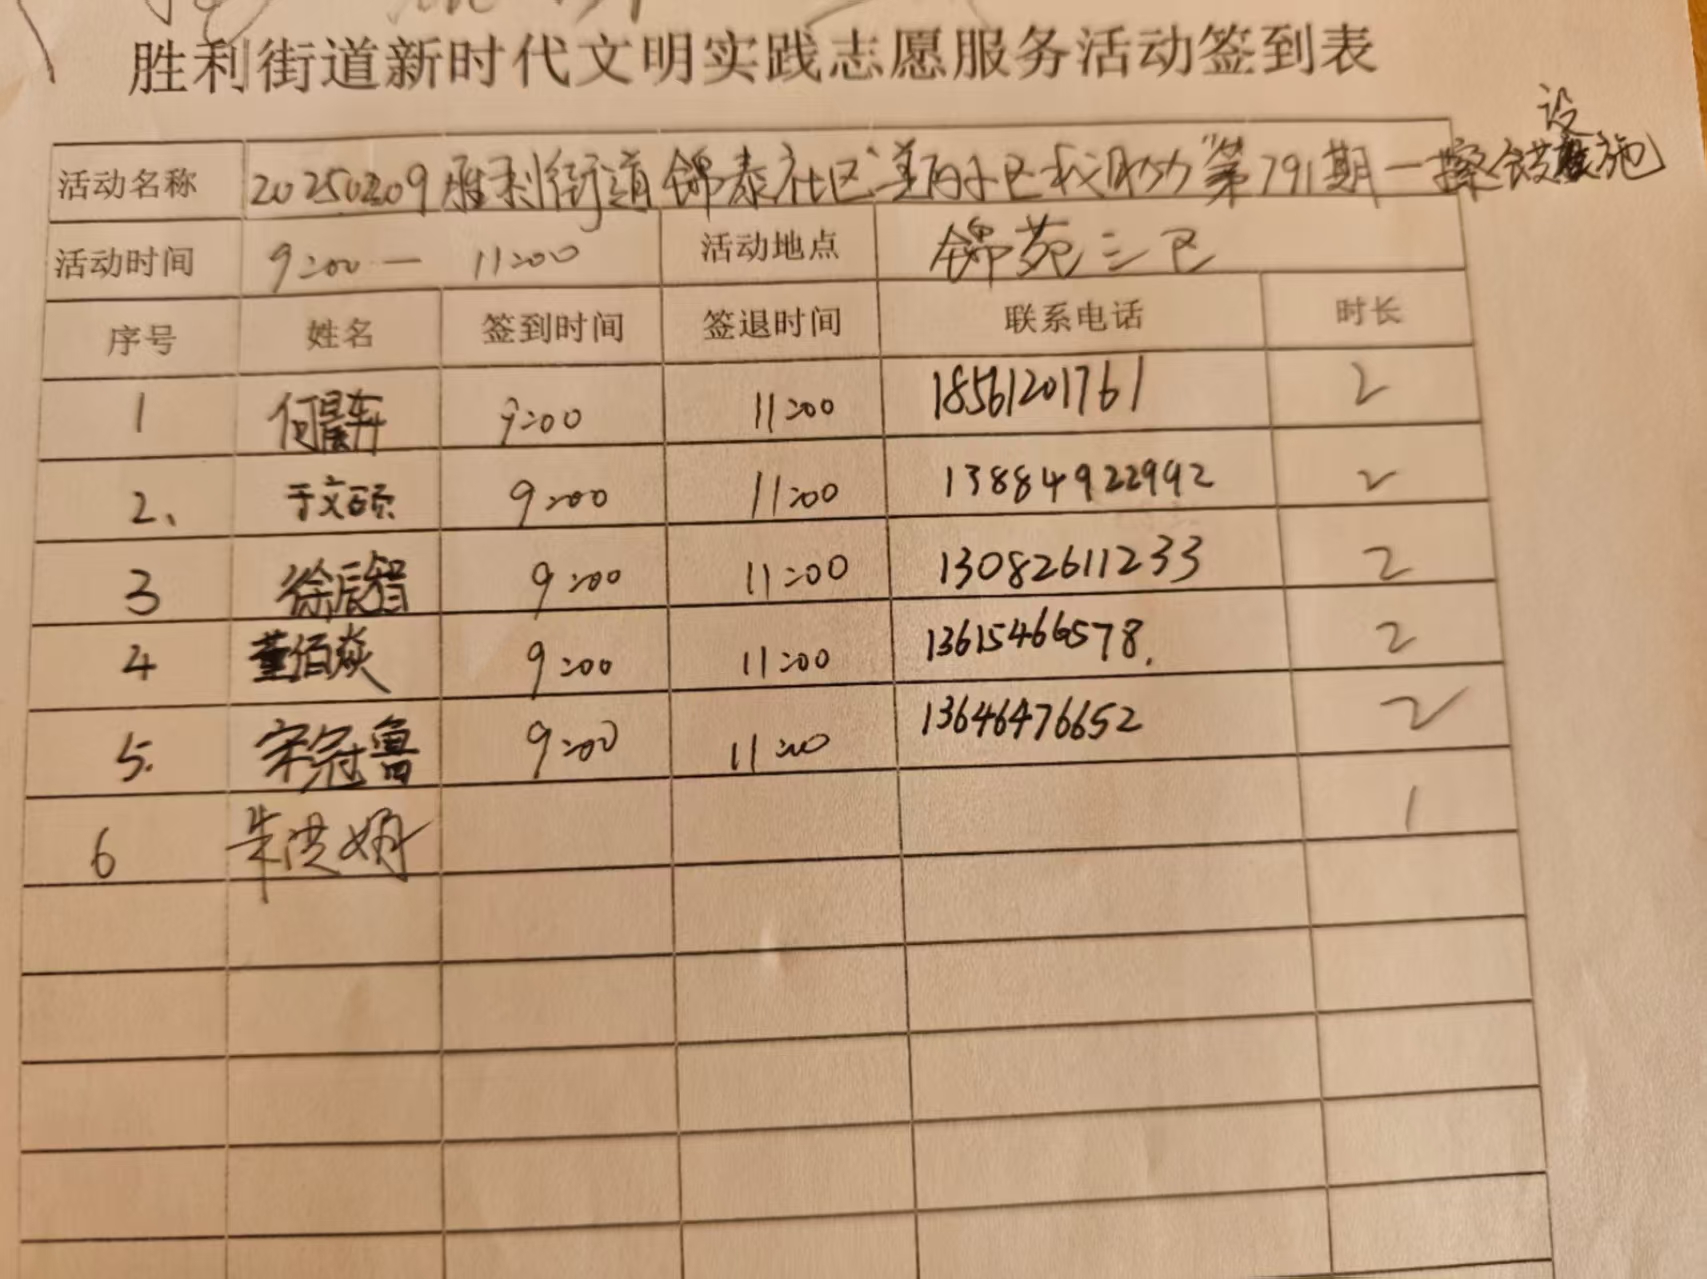 胜利街道新时代文明实践志愿服务活动签到表
活动名称 20250209胜利街道锦泰社区"美丽小区我助力"第791期一擦设施
活动时间 9:00一 11:00 活动地点 锦苑三区
序号 姓名 签到时间 签退时间 联系电话 时长
1 何 9:00 11:00 18561201761 2
2、 于文硕 9:00 11:00 13884922992 2
3 徐辰智 9:00 11:00 13082611233 2
4 董佰焱 9:00 11:00 13615466578. 2
5. 宋冠鲁 9:00 11:00 13646476652 2
6 朱洪娟 1